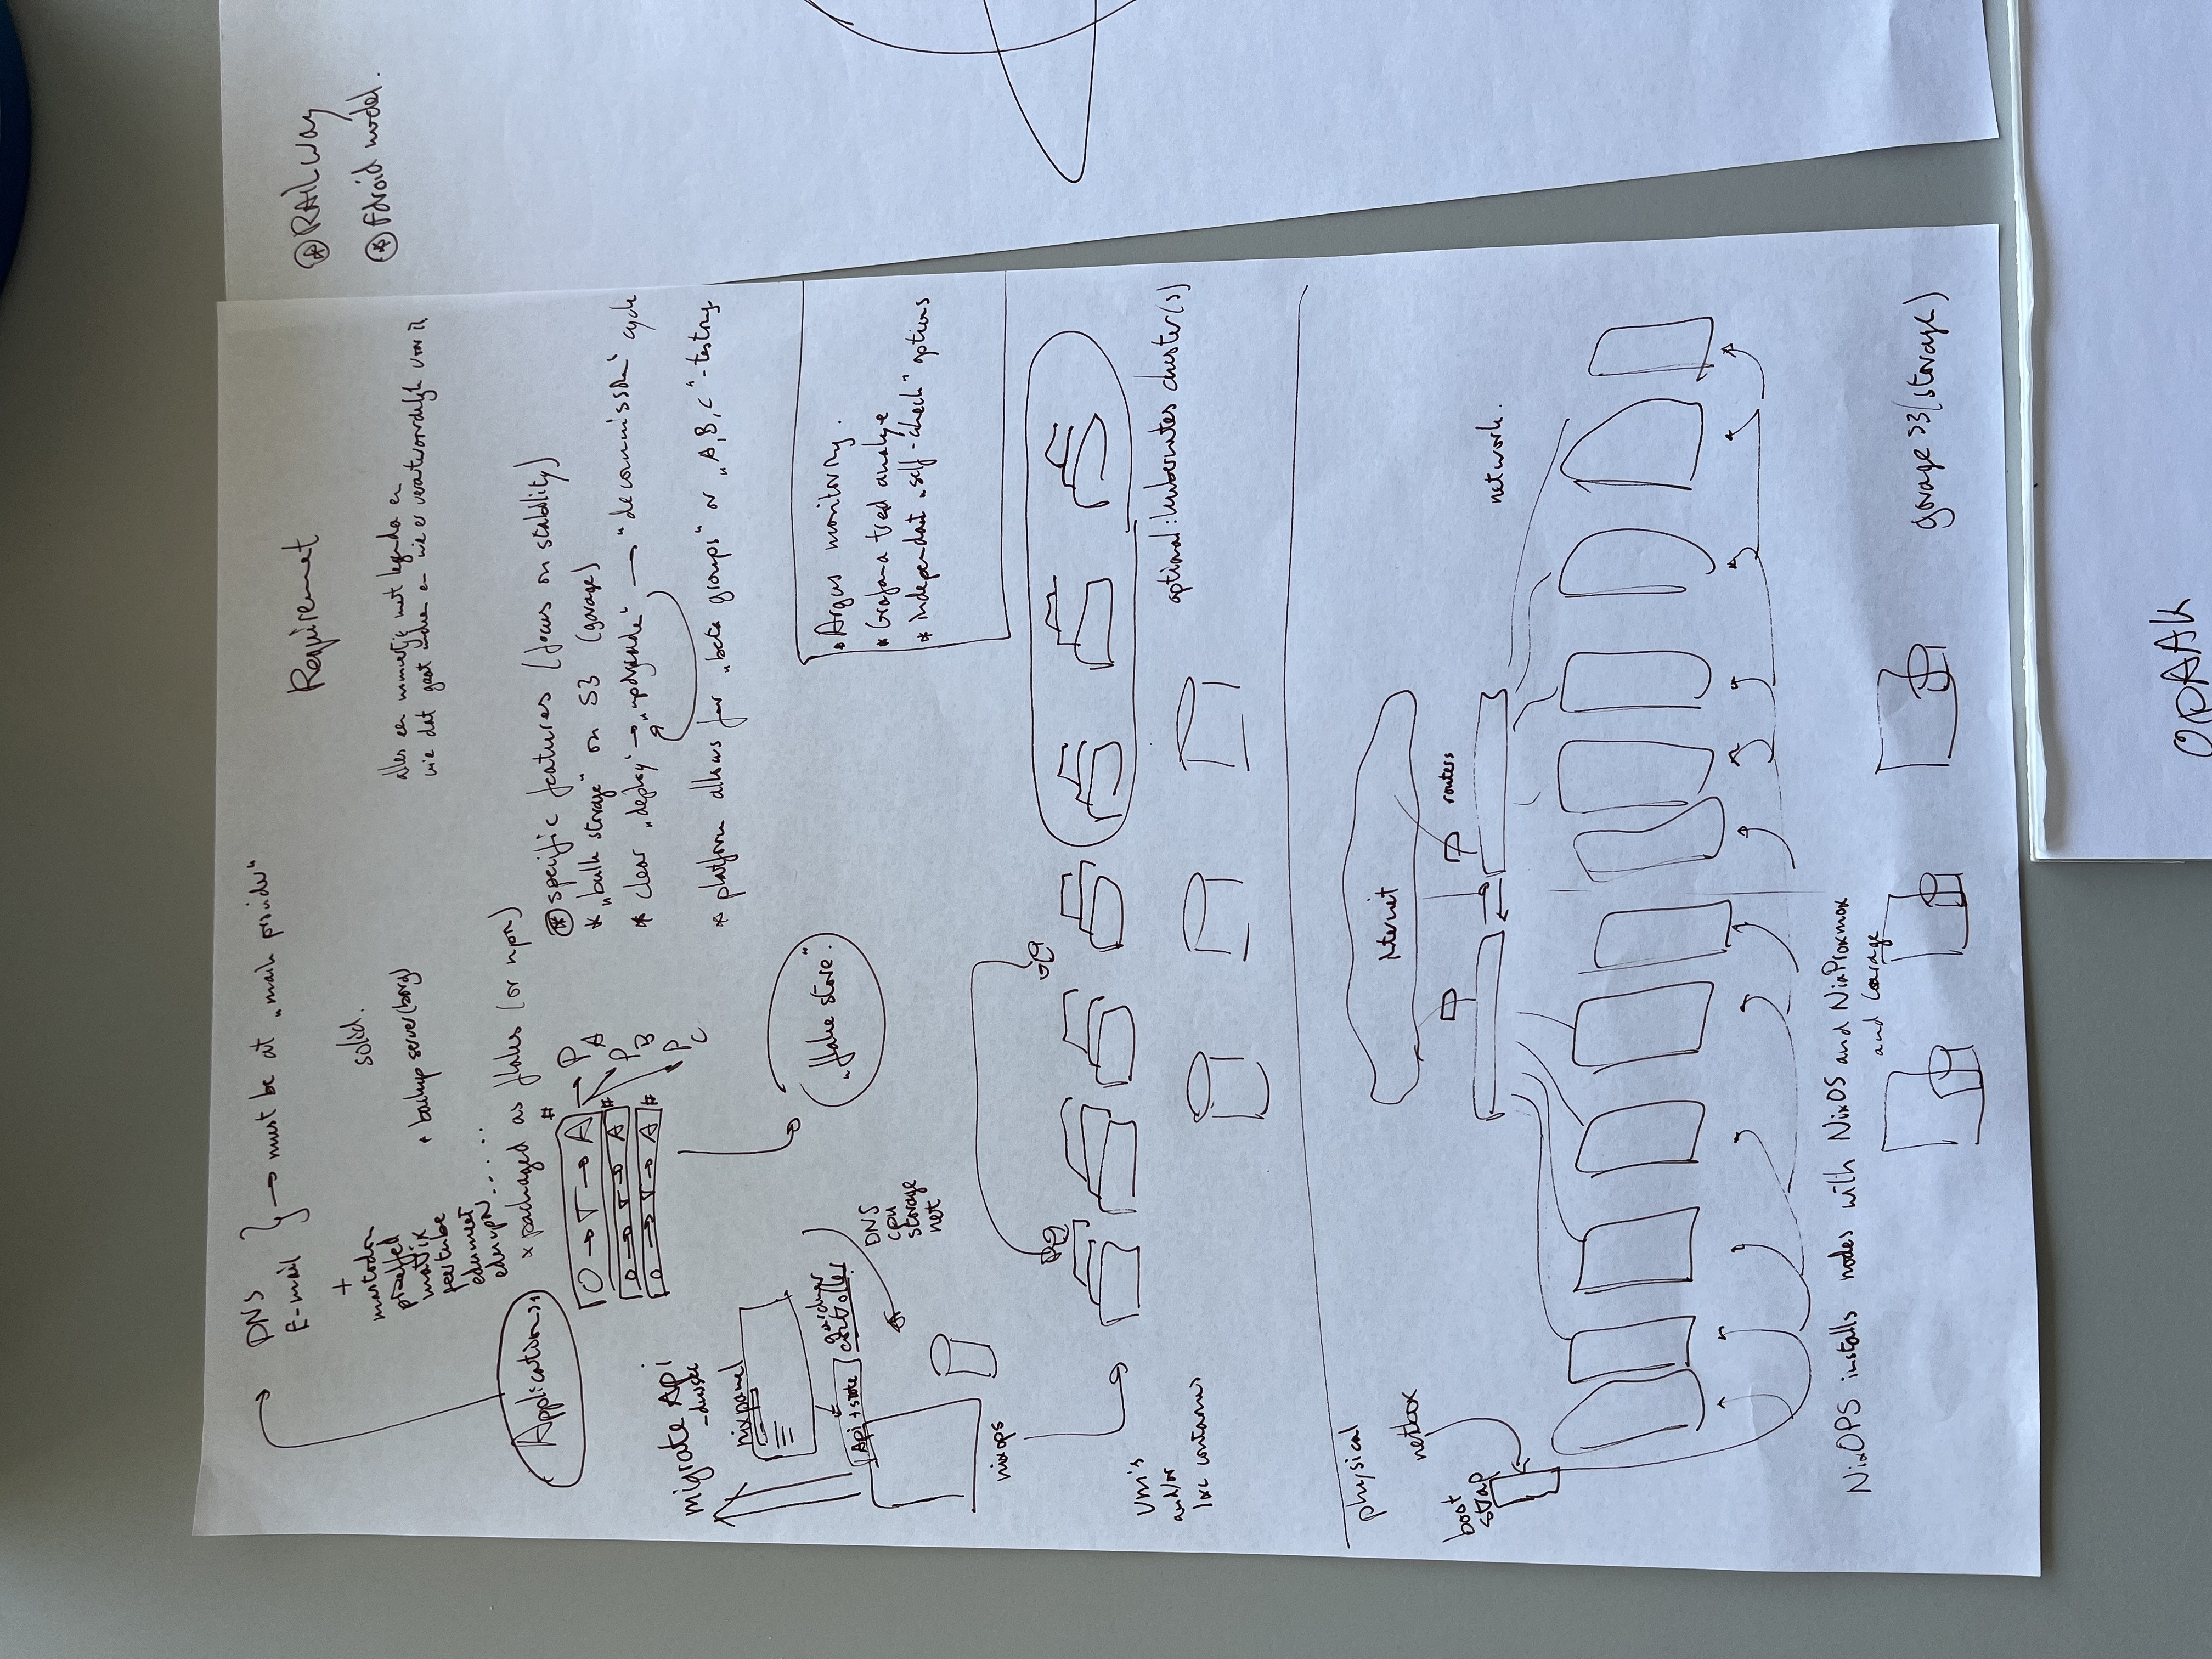 ⊛ RAILWay
⊛ Fdroid model.
DNS
E-mail } → must be at „main provider"
Requirement
+
mastodon
pixelfed
matrix
peertube
edumeet
eduvpn.....
solid.
+ backup server (borg)
alles en
wie dat gaat en wie er verantwoordelijk voor is
Applications
* packaged as flakes (or npn)
O → T → A # → P A
O → T → A # P B
O → T → A # P C
„flake store."
⊛ specific features (focus on scability)
* „bulk storage" on S3 (garage)
* clear „deploy" → „upgrade" → "decommission" cycle
* platform allows for „beta groups" or „A,B,C"-testing
migrate Api
nixpanel
Api + state
controller
DNS
cpu
storage
net
nixops
• Argus monitoring.
* Grafana trend analyse
* independant „self-check" options
Vm's
and/or
lxc containers
optional: kubernetes cluster(s)
physical
netbox
boot
strap
internet
routers
network.
NixOPS installs nodes with NixOS and NixProxmox
and Garage
garage S3 (storage)
OPAAh